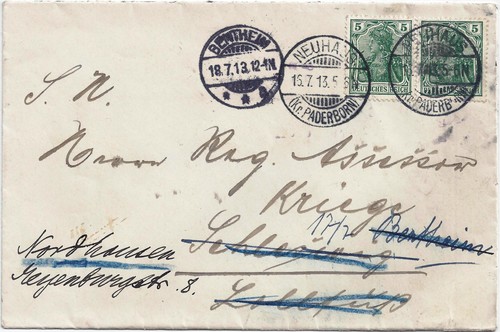 BENTHEIM
18.7.13.12-1N.
* * a
NEUHAUS
16.7.13.5-6N
(Kr. PADERBORN)
5 5
DEUTSCHES REICH
5 5
NEUHAUS
(Kr. PADERBORN)
S. H.
Herrn Reg. Assessor
Kriege
17/7 Bentheim
Nordhausen
Schleswig
Geyenburgstr. 8.
Lollfuß